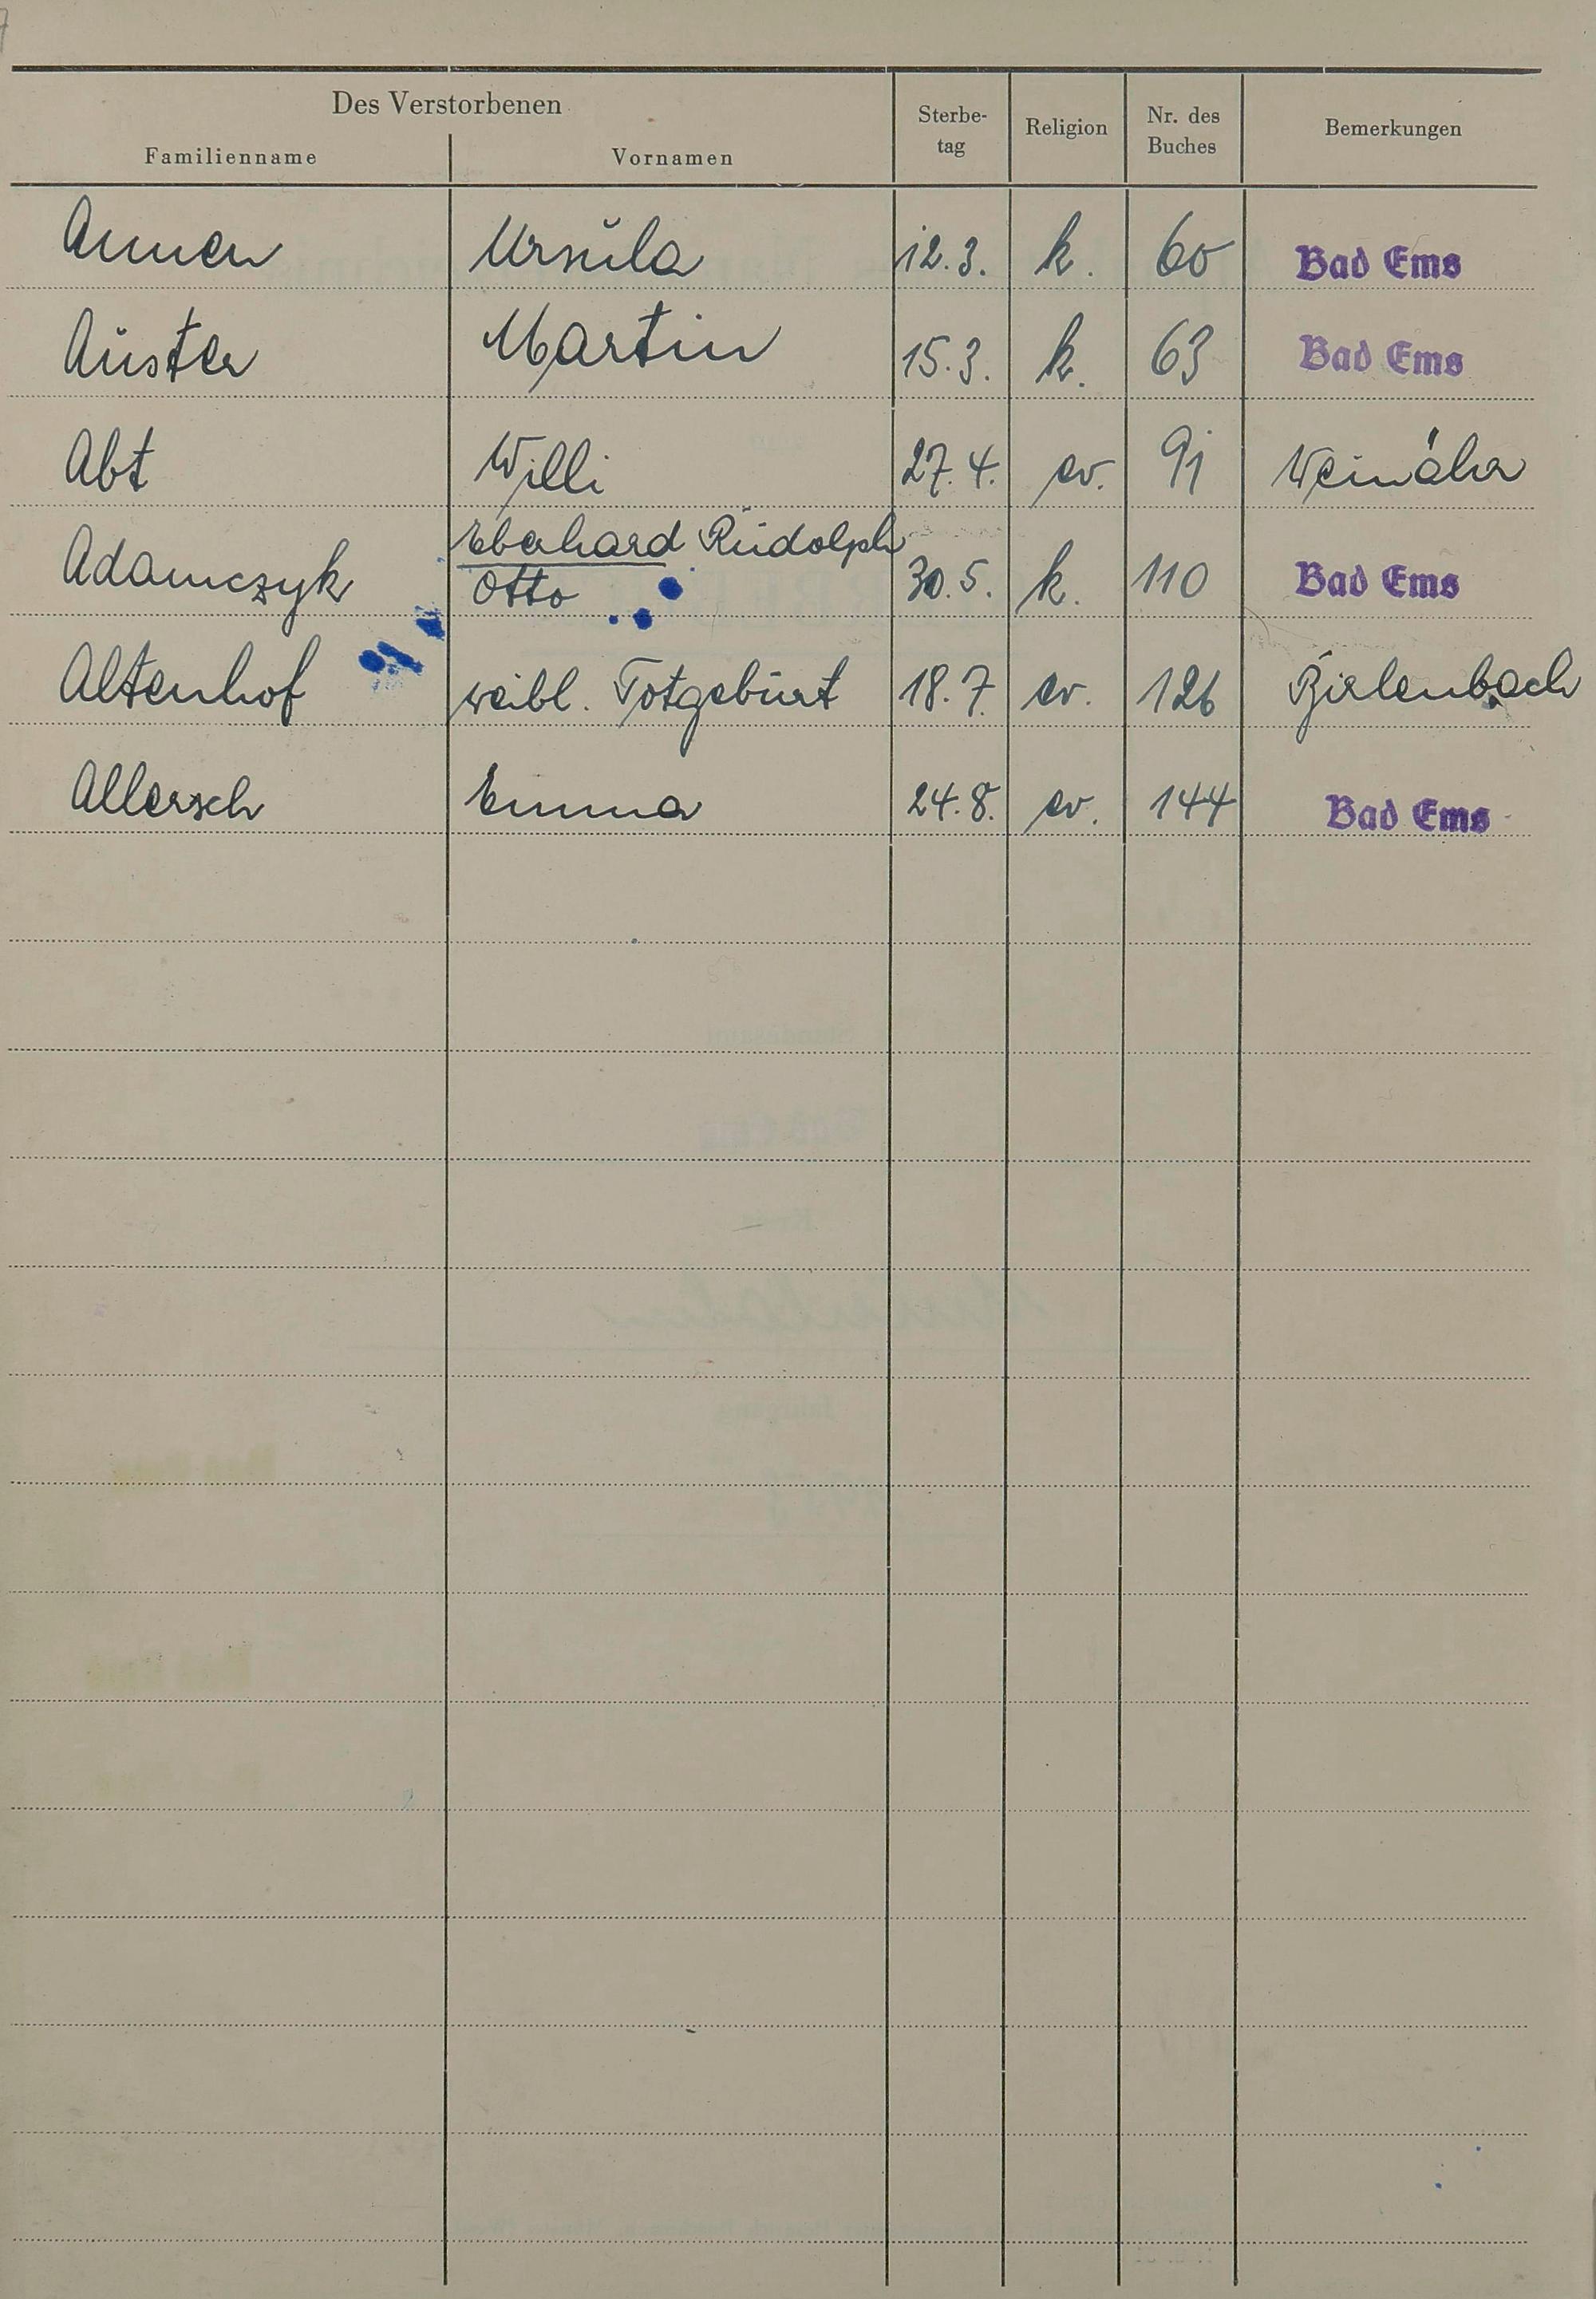 Des Verstorbenen
Familienname Vornamen Sterbe-tag Religion Nr. des Buches Bemerkungen
Annen Ursula 12.3. k. 60 Bad Ems
Auster Martin 15.3. k. 63 Bad Ems
Abt Willi 27.4. ev. 91 Weinähr
Adamczyk Eberhard Rudolph
Otto 30.5. k. 110 Bad Ems
Altenhof weibl. Totgeburt 18.7. ev. 126 Birlenbach
Allersch Emma 24.8. ev. 144 Bad Ems